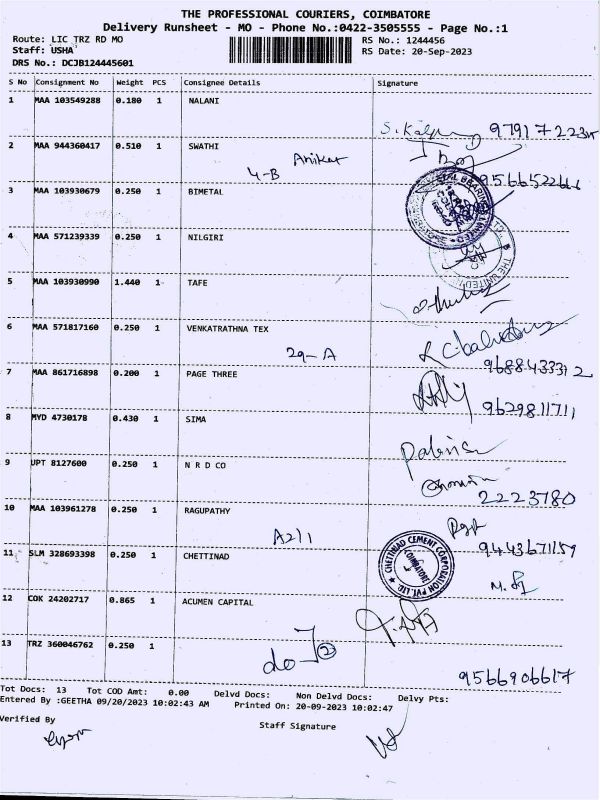 THE PROFESSIONAL COURIERS, COIMBATORE
Delivery Runsheet - MO - Phone No.:0422-3505555 - Page No.:1
Route: LIC TRZ RD MO
RS No.: 1244456
Staff: USHA
RS Date: 20-Sep-2023
DRS No.: DCJB124445601
S No Consignment No Weight PCS Consignee Details Signature
1 MAA 103549288 0.180 1 NALANI
2 MAA 944360417 0.510 1 SWATHI
4-B
3 MAA 103930679 0.250 1 BIMETAL
4 MAA 571239339 0.250 1 NILGIRI
5 MAA 103930990 1.440 1 TAFE
6 MAA 571817160 0.250 1 VENKATRATHNA TEX
29-A
9688433312
7 MAA 861716898 0.200 1 PAGE THREE
9629811711
8 MYD 4730178 0.430 1 SIMA
9 UPT 8127600 0.250 1 N R D CO
2223780
10 MAA 103961278 0.250 1 RAGUPATHY
A211
9443671159
11 SLM 328693398 0.250 1 CHETTINAD
CHETTINAD CEMENT CORPORATION PVT. LTD. COIMBATORE
12 COK 24202717 0.865 1 ACUMEN CAPITAL
13 TRZ 360046762 0.250 1
do 2
9566906617
Tot Docs: 13 Tot COD Amt: 0.00 Delvd Docs: Non Delvd Docs: Delvy Pts:
Entered By :GEETHA 09/20/2023 10:02:43 AM Printed On: 20-09-2023 10:02:47
Verified By
Staff Signature